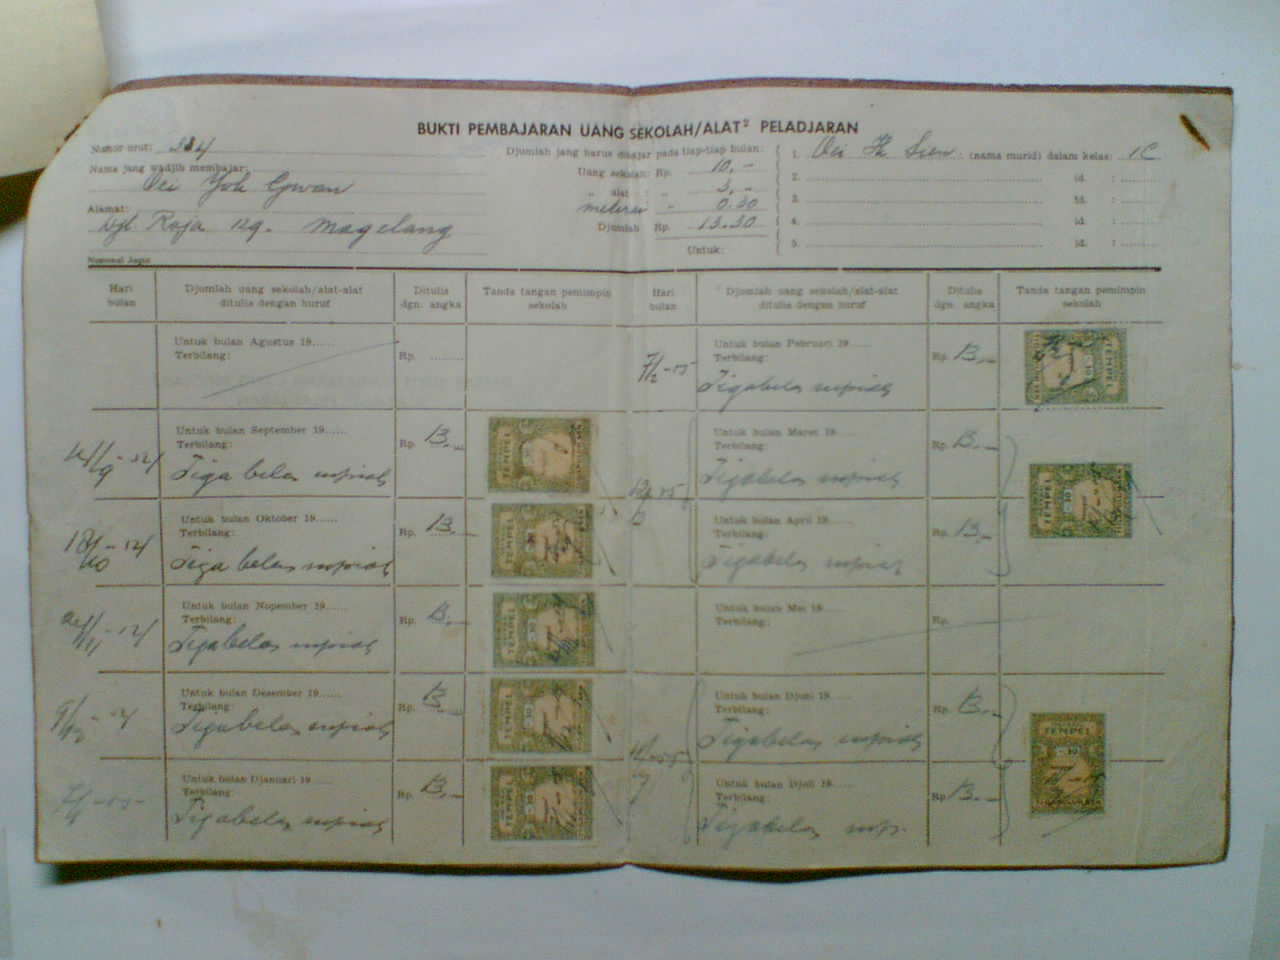 BUKTI PEMBAJARAN UANG SEKOLAH/ALAT² PELADJARAN
Nomor urut: 334
Nama jang wadjib membajar:
Oei Joh Gwan
Alamat:
Djl. Raja 129. Magelang
Djumlah jang harus dibajar pada tiap-tiap bulan:
Uang sekolah: Rp. 10,-
„ alat : „ 3,-
meterei „ 0.30
Djumlah Rp. 13.30
Untuk:
1. Oei H. Sien. (nama murid) dalam kelas: 1C
2. id. :
3. id. :
4. id. :
5. id. :
Hari bulan
Djumlah uang sekolah/alat-alat ditulis dengan huruf
Ditulis dgn. angka
Tanda tangan pemimpin sekolah
Untuk bulan Agustus 19.....
Terbilang:
Rp. ........
14/9-54
Untuk bulan September 19.....
Terbilang:
Tiga belas rupiah
Rp. 13.-
TEMPEL
Untuk bulan Oktober 19.....
Terbilang:
Tiga belas rupiah
Rp. 13.-
TEMPEL
Untuk bulan Nopember 19.....
Terbilang:
Tigabelas rupiah
Rp. 13.-
TEMPEL
Untuk bulan Desember 19.....
Terbilang:
Tigabelas rupiah
Rp. 13.-
TEMPEL
Untuk bulan Djanuari 19.....
Terbilang:
Tigabelas rupiah
Rp. 13.-
TEMPEL
Hari bulan
Djumlah uang sekolah/alat-alat ditulis dengan huruf
Ditulis dgn. angka
Tanda tangan pemimpin sekolah
7/2-55
Untuk bulan Pebruari 19.....
Terbilang:
Tigabelas rupiah
Rp. 13.-
TEMPEL
Untuk bulan Maret 19.....
Terbilang:
Tigabelas rupiah
Rp. 13.-
TEMPEL
Untuk bulan April 19.....
Terbilang:
Tigabelas rupiah
Rp. 13.-
Untuk bulan Mei 19.....
Terbilang:
Rp.
Untuk bulan Djuni 19.....
Terbilang:
Tigabelas rupiah
Rp. 13.-
TEMPEL
Untuk bulan Djuli 19.....
Terbilang:
Tigabelas rup.
Rp. 13.-